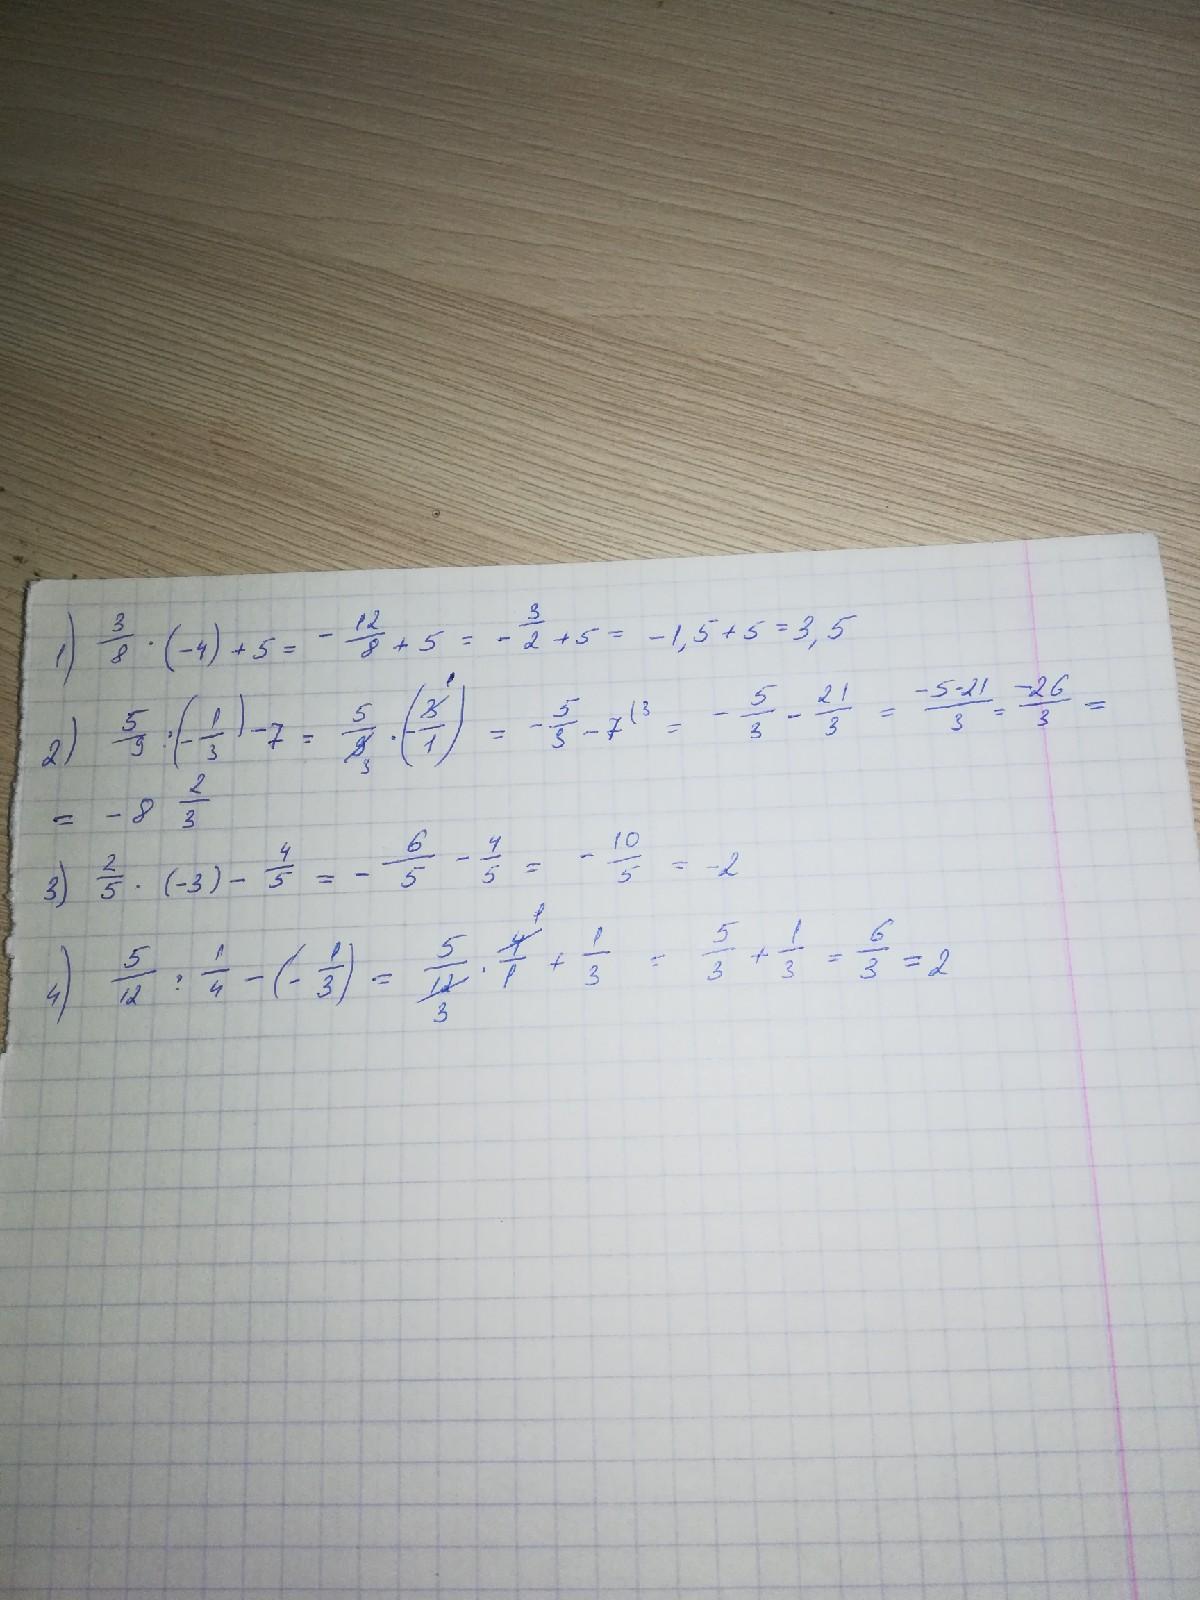 1) 3/8 · (-4) + 5 = - 12/8 + 5 = - 3/2 + 5 = -1,5 + 5 = 3,5
2) 5/9 : (- 1/3) - 7 = 5/9 3 · (- 3/1 1) = - 5/3 - 7 (3 = - 5/3 - 21/3 = -5-21/3 = -26/3 =
= - 8 2/3
3) 2/5 · (-3) - 4/5 = - 6/5 - 4/5 = - 10/5 = -2
4) 5/12 : 1/4 - (- 1/3) = 5/12 3 · 4/1 1 + 1/3 = 5/3 + 1/3 = 6/3 = 2